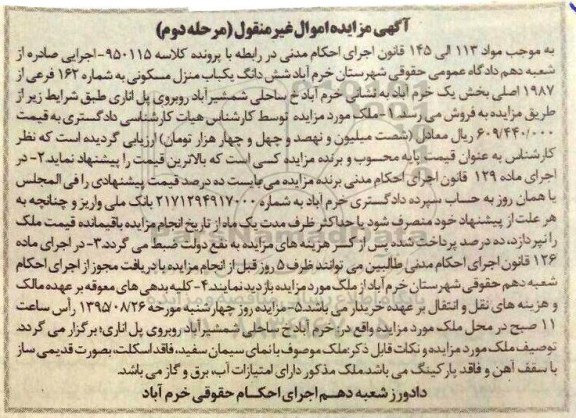 آگهی مزایده اموال غیر منقول (مرحله دوم)
به موجب مواد ۱۱۳ الی ۱۴۵ قانون اجرای احکام مدنی در رابطه با پرونده کلاسه ۹۵۰۱۱۵-اجرایی صادره از
شعبه دهم دادگاه عمومی حقوقی شهرستان خرم آباد شش دانگ یکباب منزل مسکونی به شماره ۱۶۲ فرعی از
۱۹۸۷ اصلی بخش یک خرم آباد به نشانی خرم آباد خ ساحلی شمشیرآباد روبروی پل اناری طبق شرایط زیر از
طریق مزایده به فروش می رسد.۱-ملک مورد مزایده توسط کارشناس هیات کارشناسی دادگستری به قیمت
۶۰۹/۴۴۰/۰۰۰ ریال معادل (شصت میلیون و نهصد و چهل و چهار هزار تومان) ارزیابی گردیده است که نظر
کارشناس به عنوان قیمت پایه محسوب و برنده مزایده کسی است که بالاترین قیمت را پیشنهاد نماید.۲-در
اجرای ماده ۱۲۹ قانون اجرای احکام مدنی برنده مزایده می بایست ده درصد قیمت پیشنهادی را فی المجلس
یا همان روز به حساب سپرده دادگستری خرم آباد به شماره ۲۱۷۱۲۹۴۹۱۷۰۰۰ بانک ملی واریز و چنانچه به
هر علت از پیشنهاد خود منصرف شود یا حداکثر ظرف مدت یک ماه از تاریخ انجام مزایده باقیمانده قیمت ملک
را نپردازد، ده درصد پرداخت شده پس از کسر هزینه های مزایده به نفع دولت ضبط می گردد.۳-در اجرای ماده
۱۲۶ قانون اجرای احکام مدنی طالبین می توانند ظرف ۵ روز قبل از انجام مزایده با دریافت مجوز از اجرای احکام
شعبه دهم حقوقی شهرستان خرم آباد از ملک مورد مزایده بازدید نمایند.۴-کلیه بدهی های معوقه بر عهده مالک
و هزینه های نقل و انتقال بر عهده خریدار می باشد.۵-مزایده روز چهارشنبه مورخه ۱۳۹۵/۰۸/۲۶ رأس ساعت
۱۱ صبح در محل ملک مورد مزایده واقع در: خرم آباد خ ساحلی شمشیرآباد روبروی پل اناری؛ برگزار می گردد.
توصیف ملک مورد مزایده و نکات قابل ذکر:ملک موصوف با نمای سیمان سفید، فاقد اسکلت، بصورت قدیمی ساز
با سقف آهن و فاقد پارکینگ می باشد.ملک مذکور دارای امتیازات آب، برق و گاز می باشد.
دادورز شعبه دهم اجرای احکام حقوقی خرم آباد